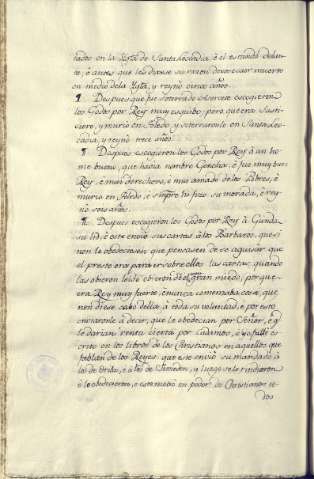 tados en la Iglesia de Santa Leocadia, è el estando delan-
te, è antes que les diesse su razon
en medio de la Iglesia, y reynó años.
¶ Despues que fue soterrado escogieron
los Godos por Rey muy esquibo, pero que era Justi-
ciero, y murio en Toledo, y soterraronle en Santa Leo-
cadia, y reynó trece años.
¶ Despues escogieron los Godos por Rey à un ho-
me bueno, que havia nombre , è fue muy buen
Rey, è muy derechero, è muy amado de los Pobres, è
murio en Toledo, è siempre hi fizo su morada, è rey-
nó seis años.
¶ Despues escogieron los Godos por Rey à
è este envió sus cartas à los Barbaros, que si
non le obedeciesen que pensasen de se aguisar que
el presto era para ir sobre ellos las cartas, quando
las obieron leido obieron del gran miedo, porque
era Rey muy fuerte, è nunca comenzaba cosa, que
non diese cabo della à toda su voluntad, è por esto
enviaronle à decir, que le obedecian por Señor, è q
le darian renta cierta por cadaaño, è yo fallé es-
crito en los libros de los Christianos en aquellos que
fablan de los Reyes que este envió su mandado à
los de è à los de y luego se le rindieron
è le obedecieron, è este metió en poder de Christianos to-
dos